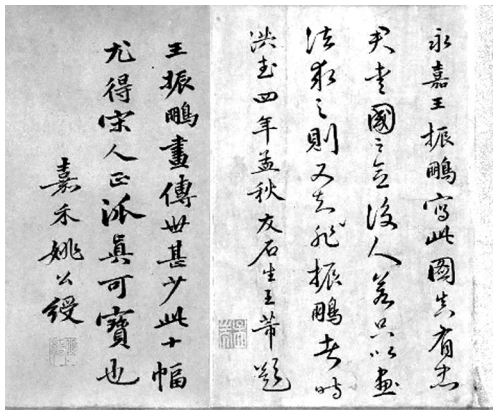 永嘉王振鵬寫此圖真有忠
君愛國之意後人若只以畫
法求之則又振鵬者時
洪武四年孟秋友石生王芾題
王振鵬畫傳世甚少此十幅
尤得宋人正派眞可寶也
嘉禾姚公綬